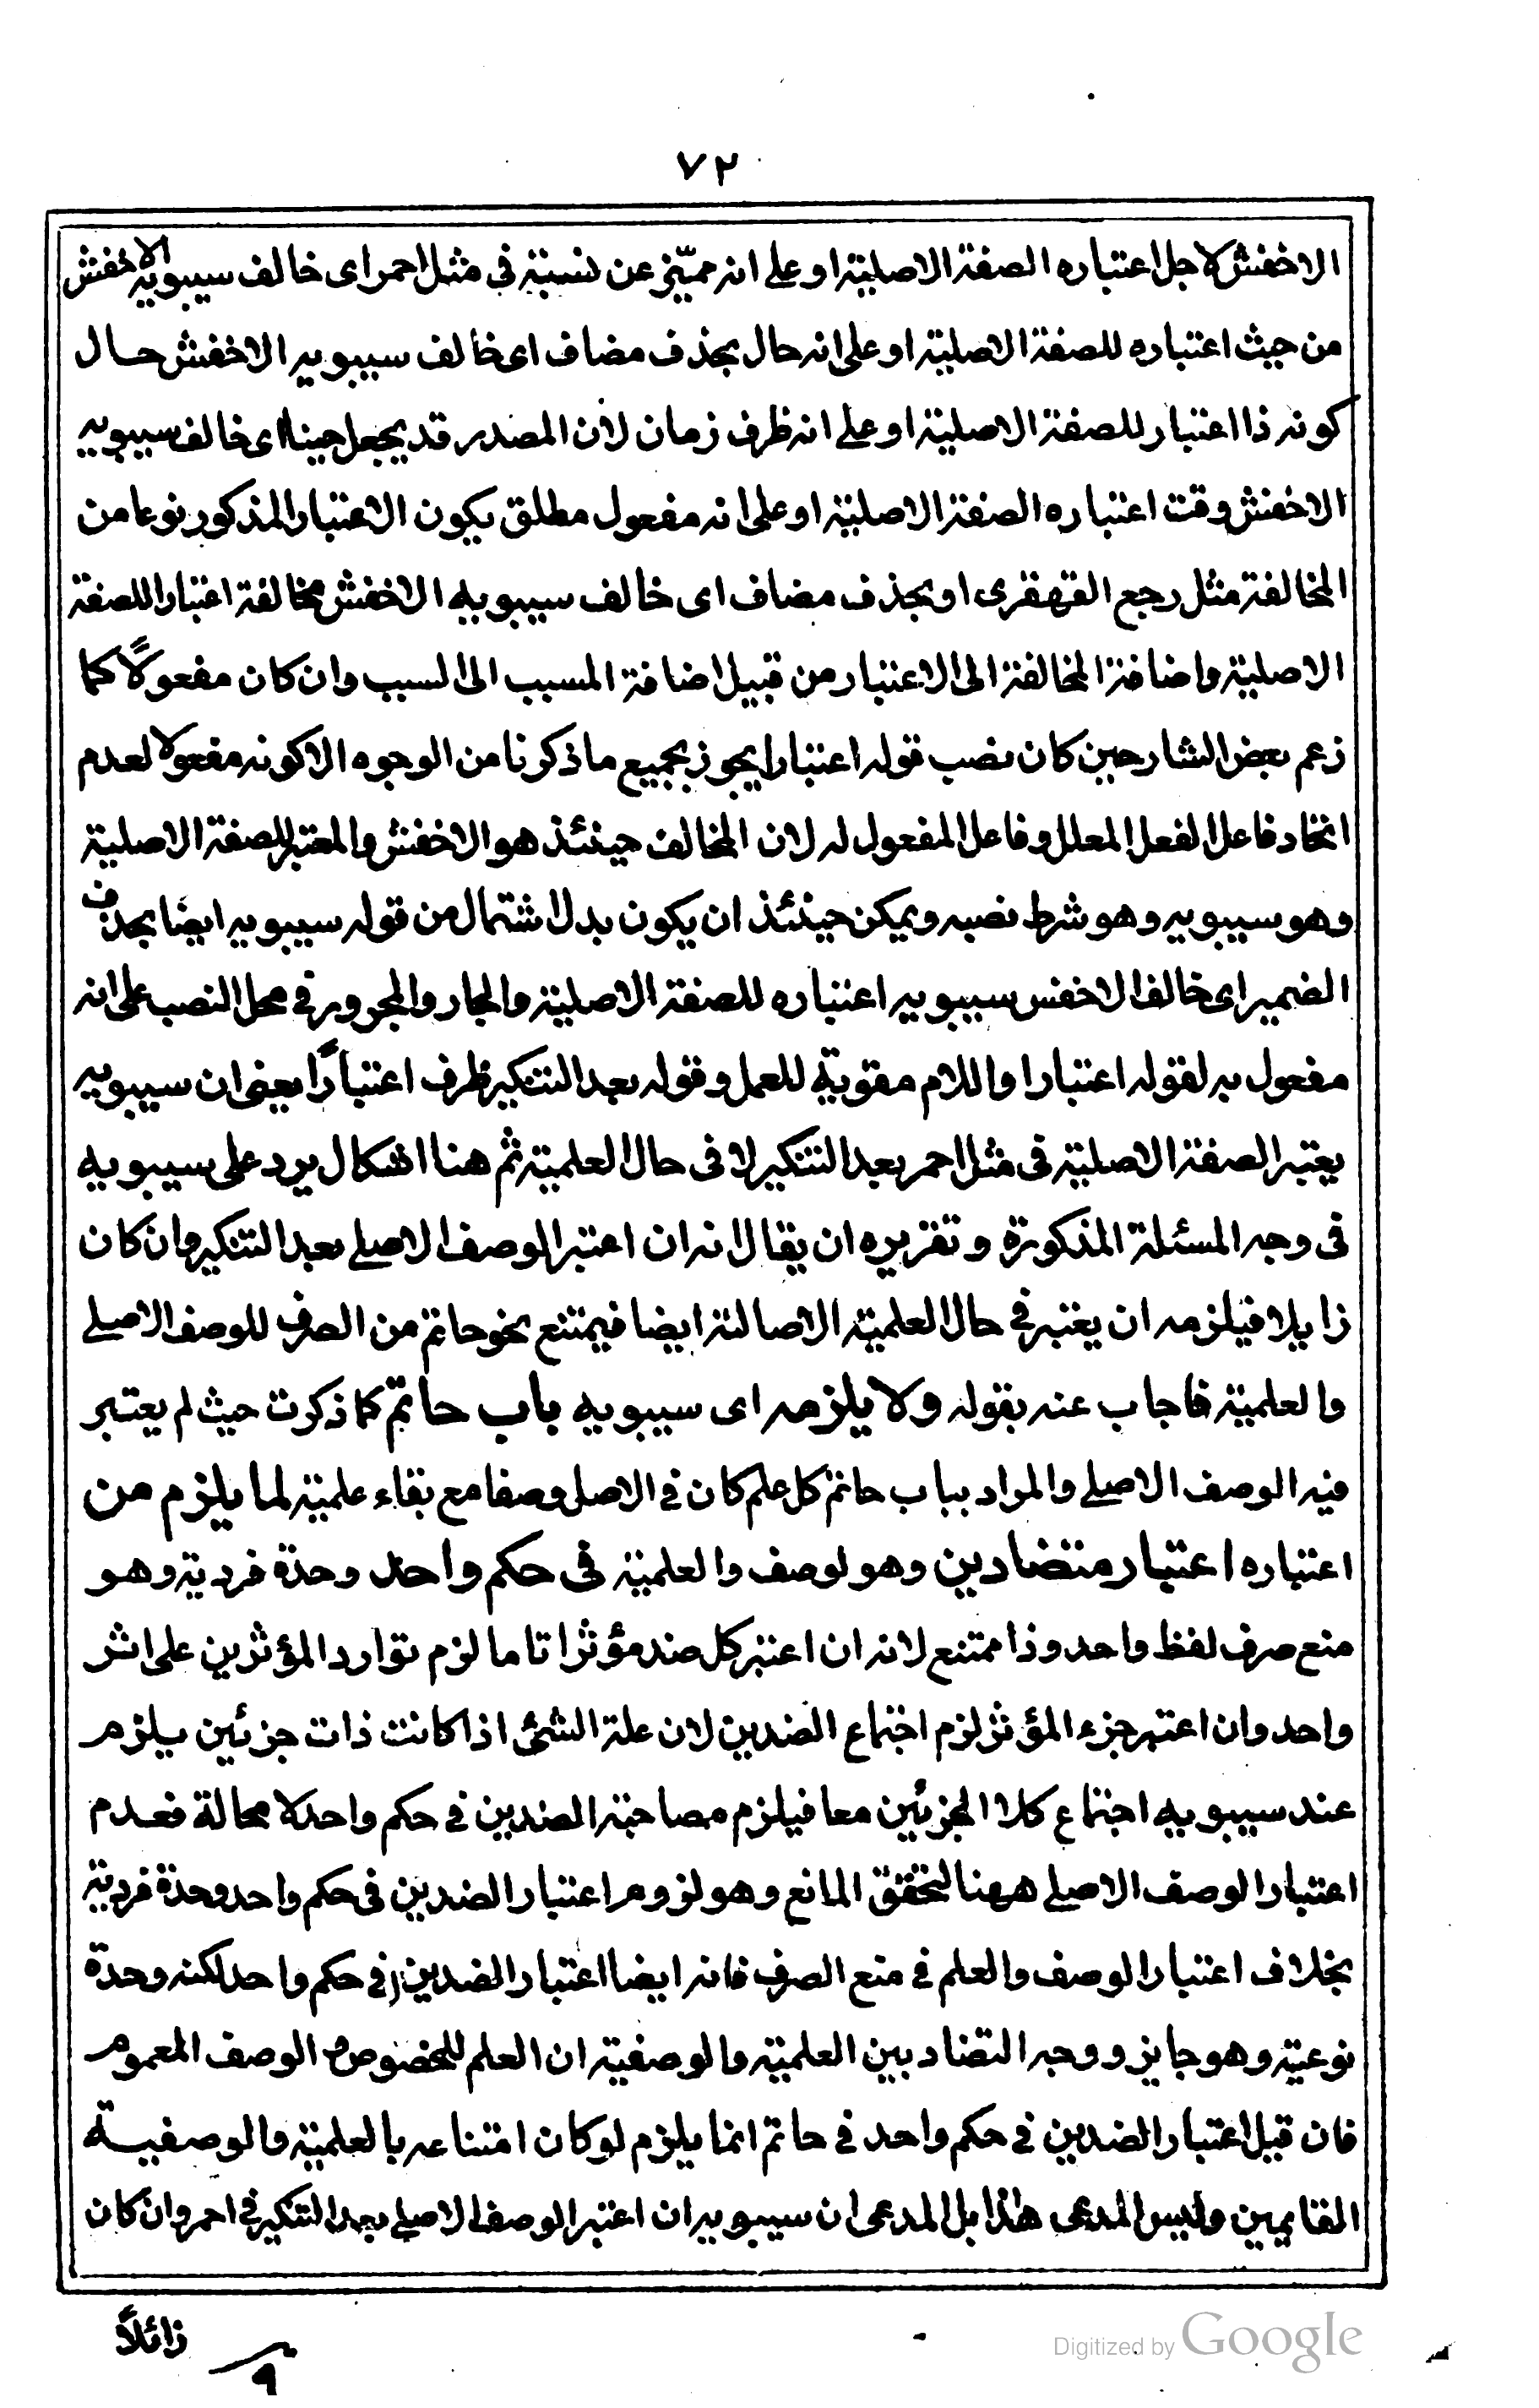 ٧٢
الاخفش لاجل اعتباره الصفة الاصلية او على انه مميّز عن نسبة فى مثل احمر اى خالف سيبويه الاخفش
من حيث اعتباره للصفة الاصلية او على انه حال بحذف مضاف اى خالف سيبويه الاخفش حال
كونه ذا اعتبار للصفة الاصلية او على انه ظرف زمان لان المصدر قد يجعل حينا اى خالف سيبويه
الاخفش وقت اعتباره الصفة الاصلية او على انه مفعول مطلق يكون الاعتبار المذكور نوعا من
المخالفة مثل رجع القهقرى او بحذف مضاف اى خالف سيبويه الاخفش مخالفة اعتبار اللصفة
الاصلية واضافة المخالفة الى الاعتبار من قبيل اضافة المسبب الى السبب وان كان مفعولاً كما
زعم بعض الشارحين كان نصب قوله اعتبارا يجوز بجميع ما ذكرنا من الوجوه الا كونه مفعولا لعدم
اتحاد فاعل الفعل المعلل وفاعل المفعول له لان المخالف حينئذ هو الاخفش والمعتبر للصفة الاصلية
وهو سيبويه وهو شرط نصبه ويمكن حينئذ ان يكون بدل اشتمال من قوله سيبويه ايضا بحذف
الضمير اى خالف الاخفس سيبويه اعتباره للصفة الاصلية والجار والمجرور فى محل النصب على انه
مفعول به لقوله اعتبارا واللام مقوية للعمل وقوله بعد التنكير ظرف اعتباراً يعنى ان سيبويه
يعتبر الصفة الاصلية فى مثل احمر بعد التنكير لا فى حال العلمية ثم هنا اشكال يرد على سيبويه
فى وجه المسئلة المذكورة وتقريره ان يقال انه ان اعتبر الوصف الاصلے بعد التنكير وان كان
زايلا فيلزمه ان يعتبر فى حال العلمية الاصالته ايضا فيمتنع نحو حاتم من الصرف للوصف الاصلے
والعلمية فاجاب عنه بقوله ولا يلزمه اى سيبويه باب حاتم كما ذكرت حيث لم يعتبر
فيه الوصف الاصلے والمراد بباب حاتم كل علم كان فى الاصل وصفا مع بقاء علمية لما يلزم من
اعتباره اعتبار متضادين وهو لوصف والعلمية فى حكم واحد وحدة فردية وهو
منع صرف لفظ واحد وذا ممتنع لانه ان اعتبر كل ضد مؤثرا تاما لزم توارد المؤثرين على اثر
واحد وان اعتبر جزء المؤثر لزم اجتماع الضدين لان علة الشئ اذا كانت ذات جزئين يلزم
عند سيبويه اجتماع كلا الجزئين معا فيلزم مصاحبة الضدين فى حكم واحد لا محالة فعدم
اعتبار الوصف الاصلے ههنا لتحقق المانع وهو لزوم اعتبار الضدين فى حكم واحد وحدة فردية
بخلاف اعتبار الوصف والعلم فى منع الصرف فانه ايضا اعتبار الضدين فى حكم واحد لكنه وحدة
نوعية وهو جايز ووجه التضاد بين العلمية والوصفية ان العلم للخصوص و الوصف المعموم
فان قيل اعتبار الضدين فى حكم واحد فى حاتم انما يلزم لو كان امتناعه بالعلمية والوصفية
المقايمين وليس المدعى هذا بل المدعى ان سيبويه ان اعتبر الوصف الاصلے بعد التنكير فى احمر وان كان
زائلاً
٩
Digitized by Google